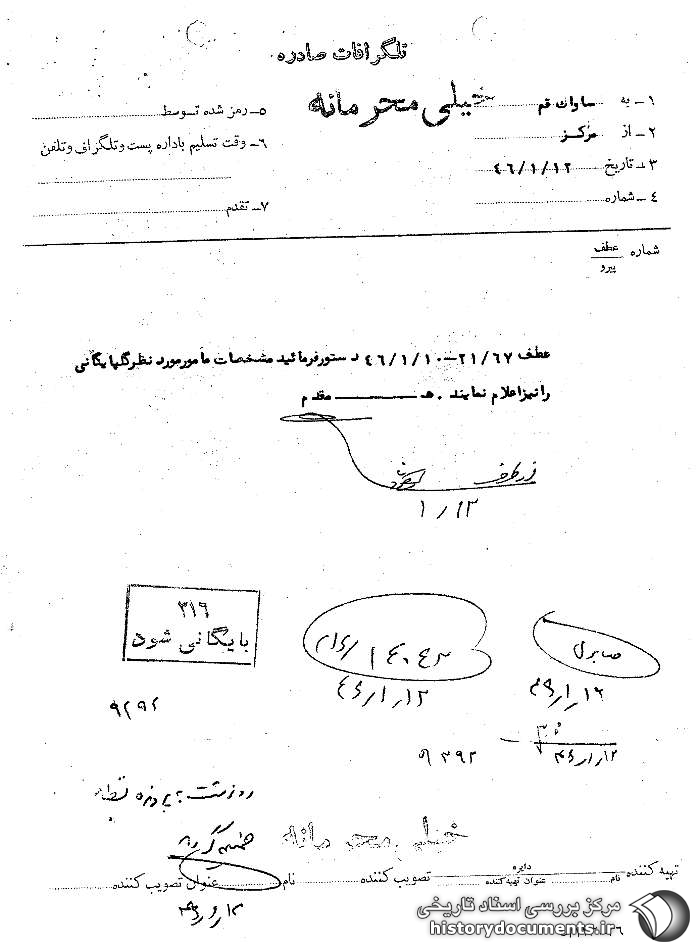 تلگرافات صادره
خیلی محرمانه
۱ـ به ساواک قم
۲ـ از مرکز
۳ـ تاریخ ۴۶/۱/۱۲
۴ـ شماره
۵ـ رمز شده توسط
۶ـ وقت تسلیم باداره پست و تلگراف و تلفن
۷ـ تقدم
شماره عطف
پیرو
عطف ۲۱/۶۷ـ۴۶/۱/۱۰ دستور فرمائید مشخصات مامور مورد نظر گلپایگانی
را نیز اعلام نمایند . هـ مقدم
از طرف
۱/۱۲
۳۱۶
بایگانی شود
صابری
۴۶/۱/۱۲
۴۶/۱/۱۲
۴۶/۱/۱۲
خیلی محرمانه
تهیه کننده نام دایره عنوان تهیه کننده تصویب کننده نام عنوان تصویب کننده
مرکز بررسی اسناد تاریخی
historydocuments.ir